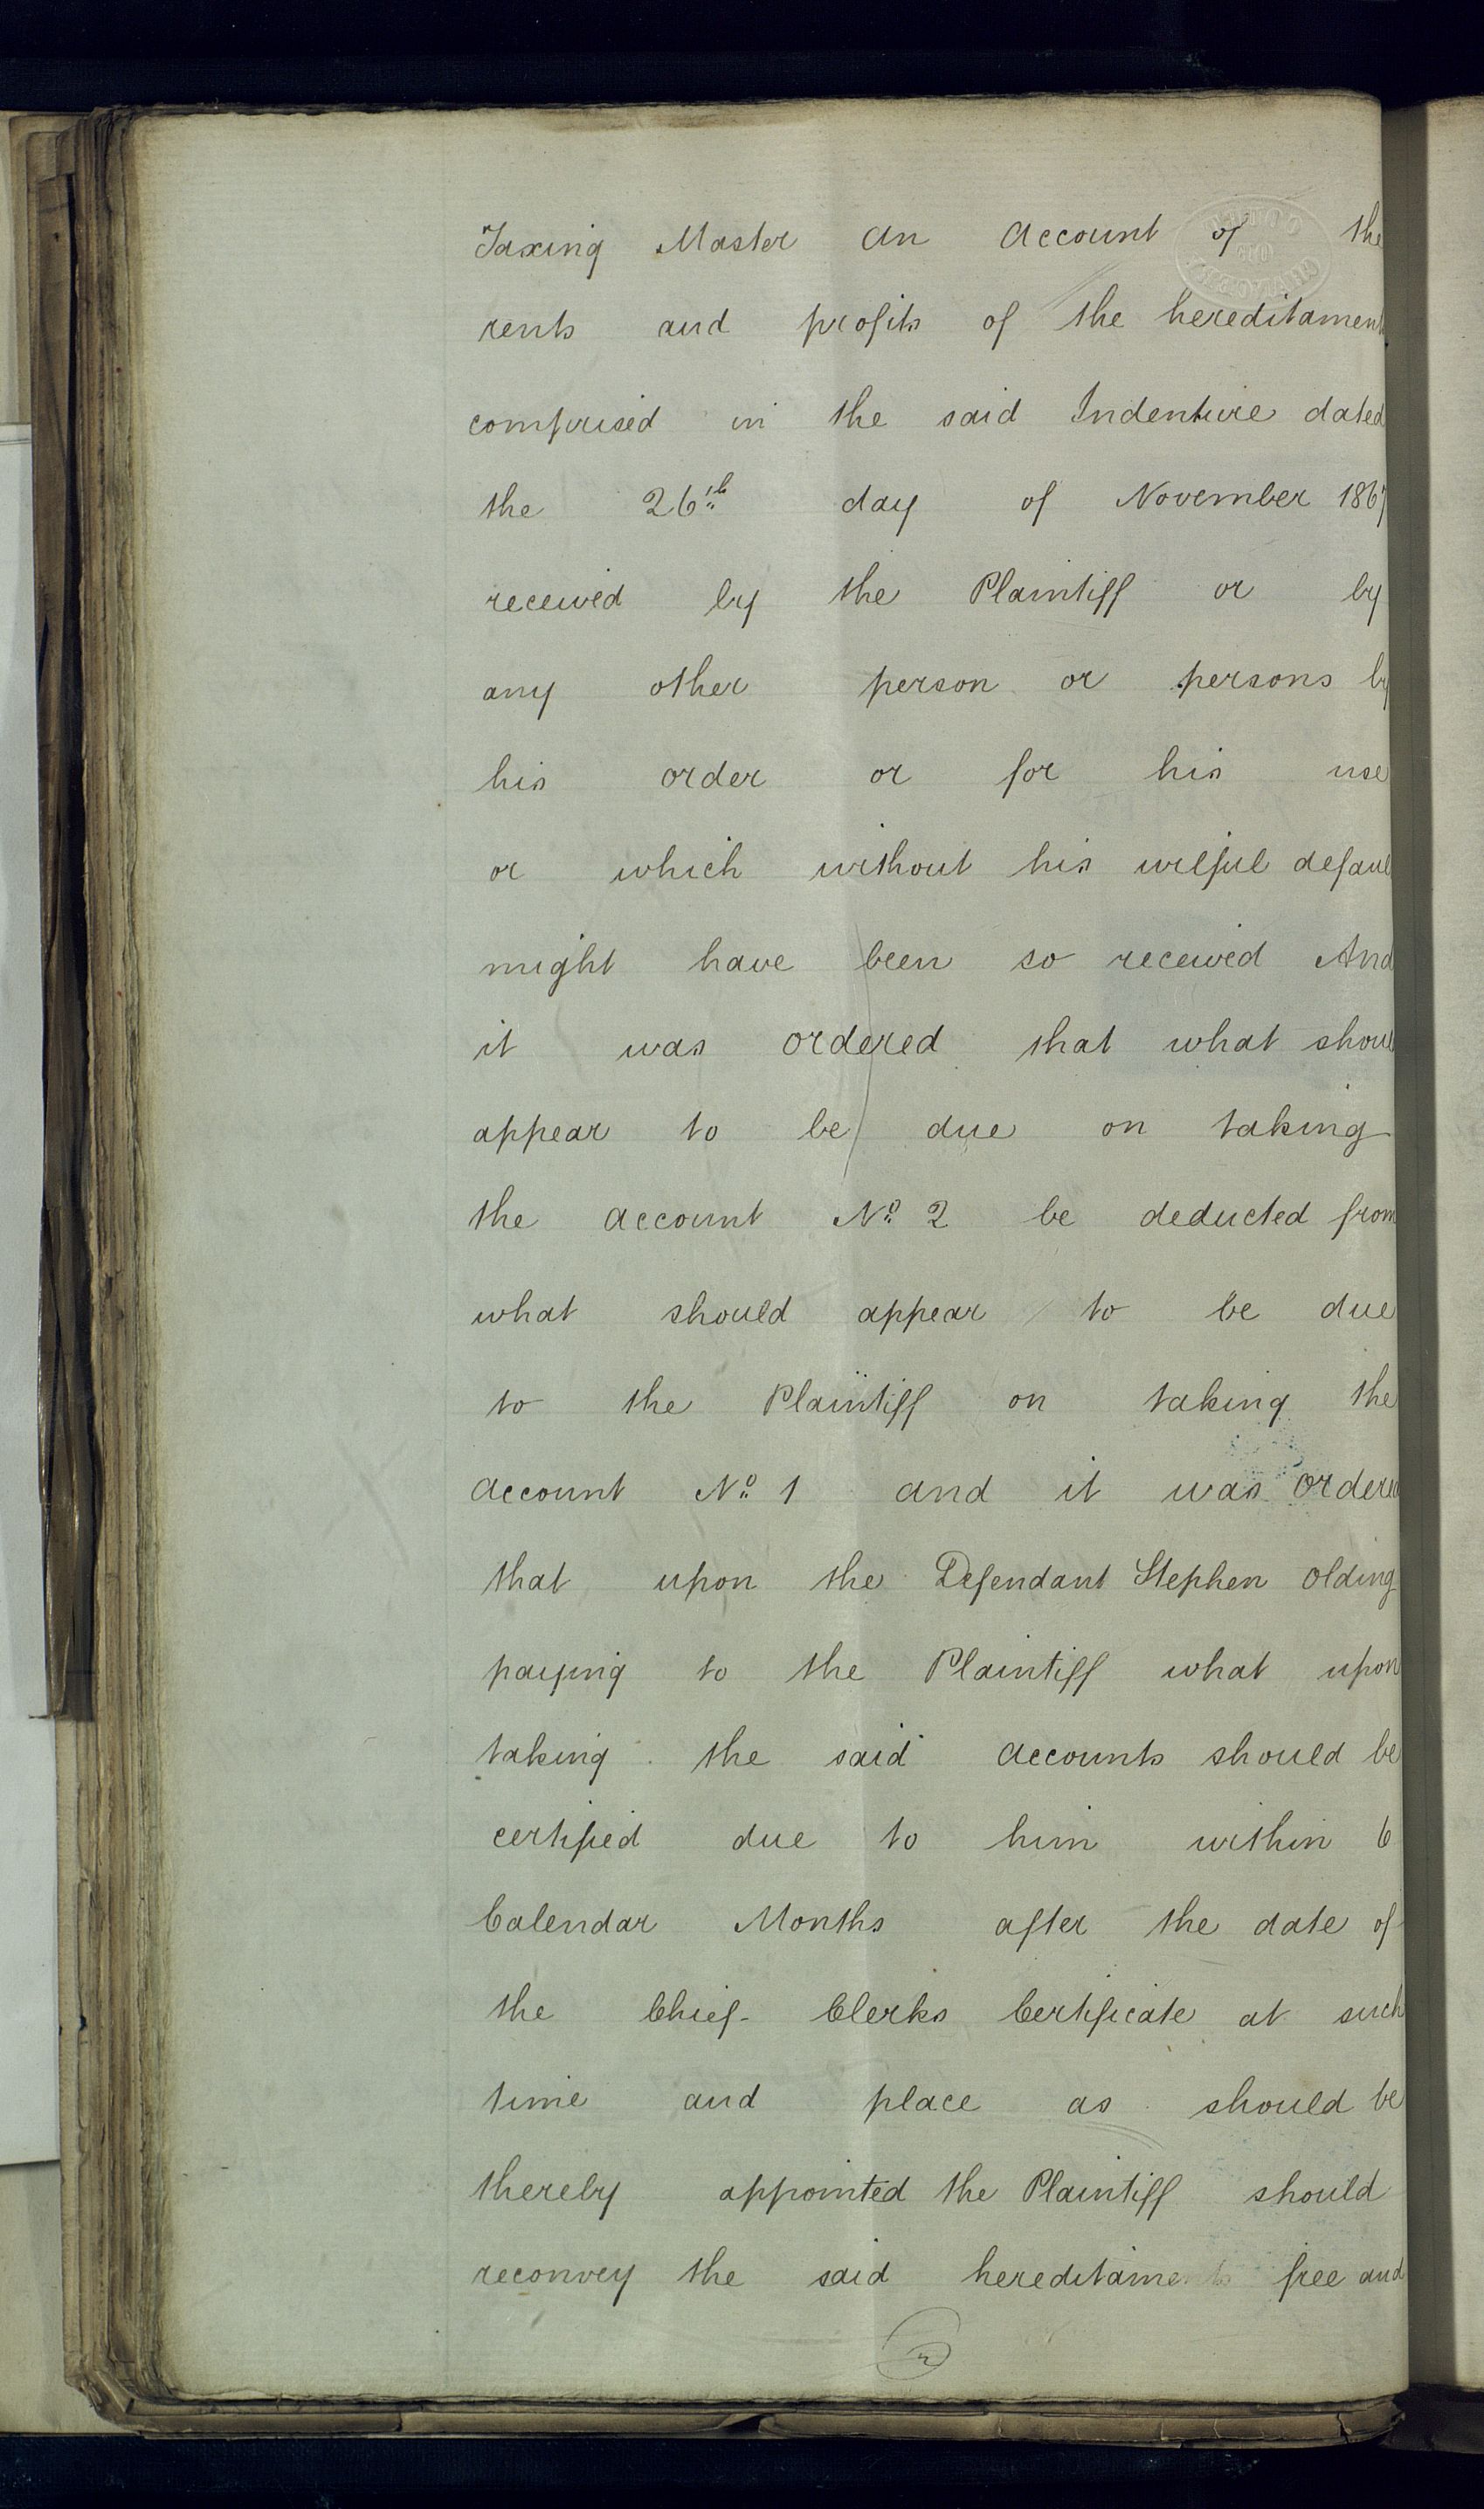 Taxing Master an account of the
rents and profits of the hereditament
comprised in the said Indenture dated
the 26th day of November 1867
received by the Plaintiff or by
any other person or persons by
his order or for his use
or which without his wilful defaul
might have been so received And
it was ordered that what shoul
appear to be due on taking
the account No. 2 be deducted from
what should appear to be due
to the Plaintiff on taking the
account No. 1 and it was ordered
that upon the Defendant Stephen Olding
paying to the Plaintiff what upon
taking the said accounts should be
certified due to him within 6
Calendar Months after the date of
the Chief Clerks Certificate at such
time and place as should be
thereby appointed the Plaintiff should
reconvey the said hereditaments free and